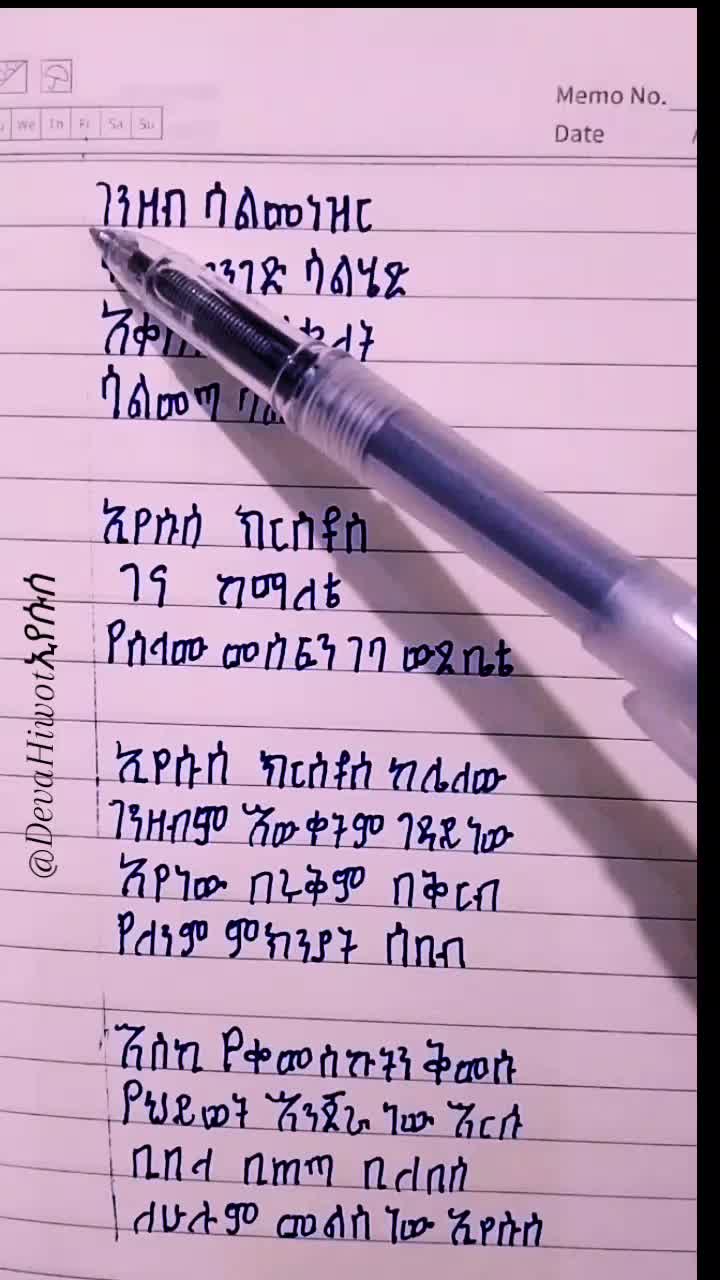 Memo No.
Date
We Th Fr Sa Su
ገንዘብ ሳልመነዝር
ሳልሄድ
ሳልመጣ
ኢየሱስ ክርስቶስ
ገና ከማለቴ
የሰላሙ መስፍን ገባ ውጄ ቤቴ
ኢየሱስ ክርስቶስ ከሌለው
ገንዘብም እውቀትም ገዳይ ነው
እያነው በሩቅም በቅርብ
የለንም ምክንያት ሰበብ
እስኪ የቀመስኩትን ቅመሱ
የህይወት እንጀራ ነው እርሱ
ቢበላ ቢጠጣ ቢለበስ
ለሁሉም መልስ ነው ኢየሱስ
@DevaHiwotኢየሱስ